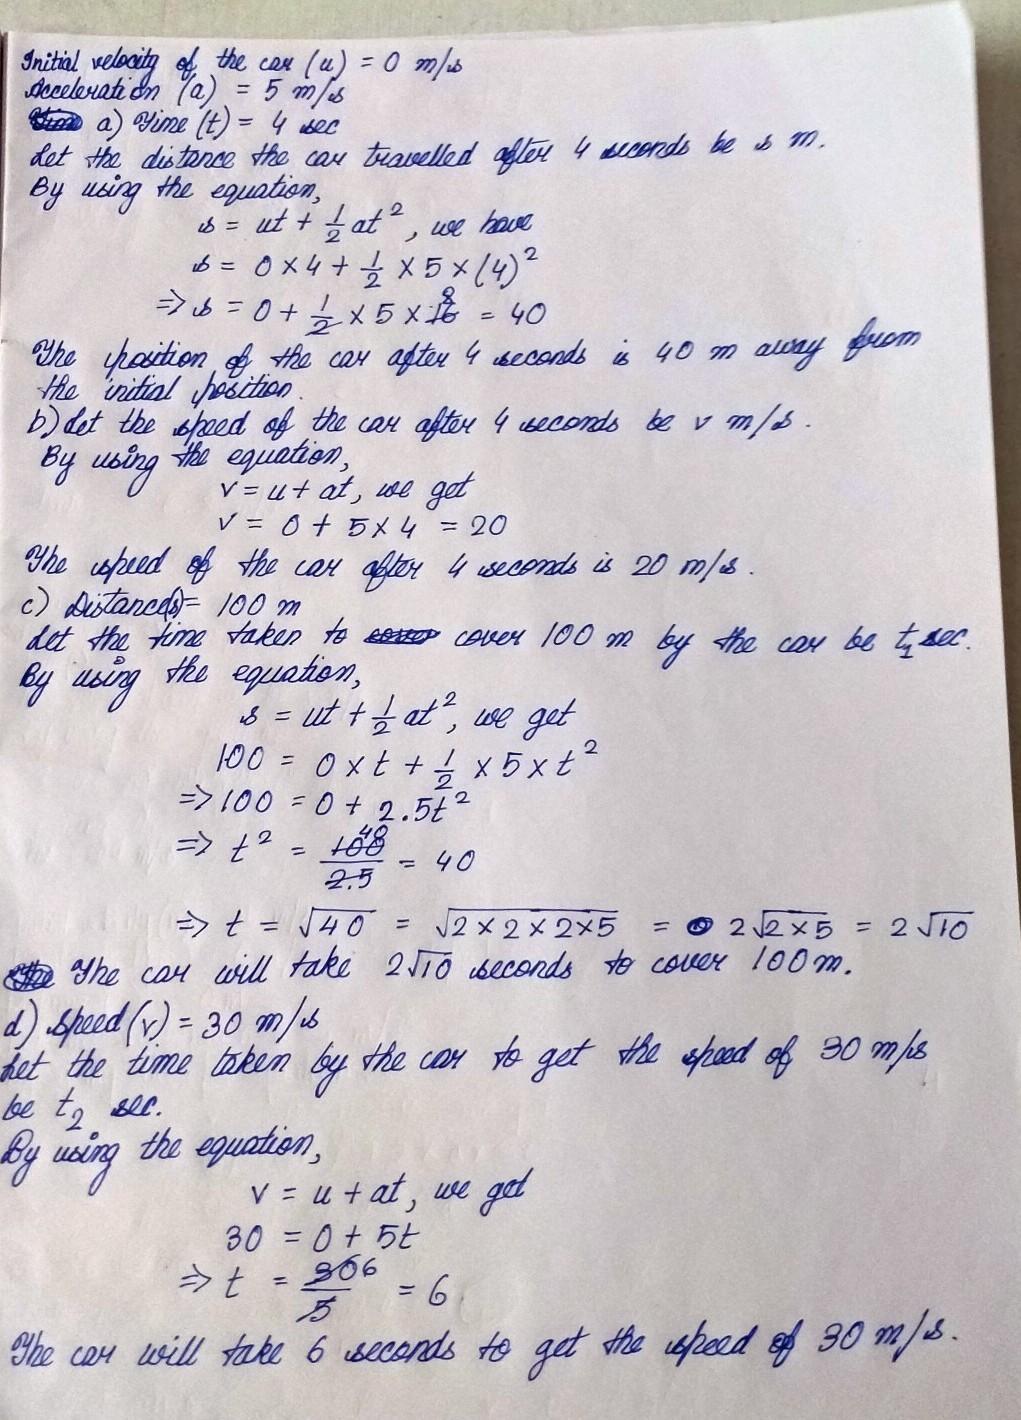 Initial velocity of the car (u) = 0 m/s
Acceleration (a) = 5 m/s
a) Time (t) = 4 sec
Let the distance the car travelled after 4 seconds be s m.
By using the equation,
s = ut + 1/2 at², we have
s = 0 × 4 + 1/2 × 5 × (4)²
⇒ s = 0 + 1/2 × 5 × 16 8 = 40
The position of the car after 4 seconds is 40 m away from
the initial position.
b) Let the speed of the car after 4 seconds be v m/s.
By using the equation,
v = u + at, we get
v = 0 + 5 × 4 = 20
The speed of the car after 4 seconds is 20 m/s.
c) Distance(s) = 100 m
Let the time taken to cover 100 m by the car be t₁ sec.
By using the equation,
s = ut + 1/2 at², we get
100 = 0 × t + 1/2 × 5 × t²
⇒ 100 = 0 + 2.5t²
⇒ t² = 100 40 / 2.5 = 40
⇒ t = √40 = √2×2×2×5 = 2√2×5 = 2√10
The car will take 2√10 seconds to cover 100 m.
d) Speed (v) = 30 m/s
Let the time taken by the car to get the speed of 30 m/s
be t₂ sec.
By using the equation,
v = u + at, we get
30 = 0 + 5t
⇒ t = 30 6 / 5 = 6
The car will take 6 seconds to get the speed of 30 m/s.